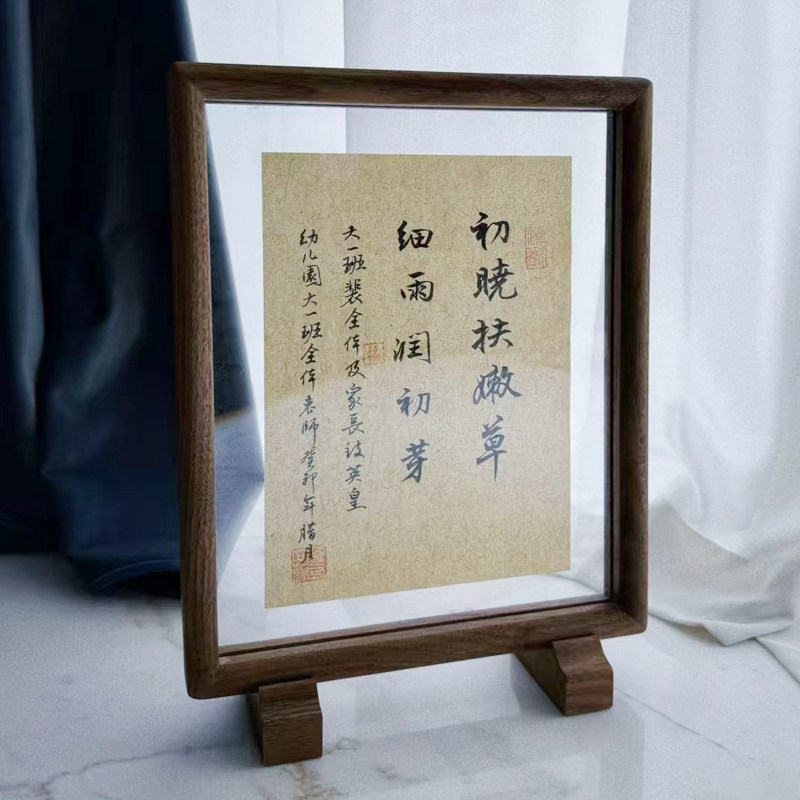 初曉扶嫩草
细雨润初芽
大一班裴全体及家長致英皇
幼儿園大一班全体老師癸卯年腊月